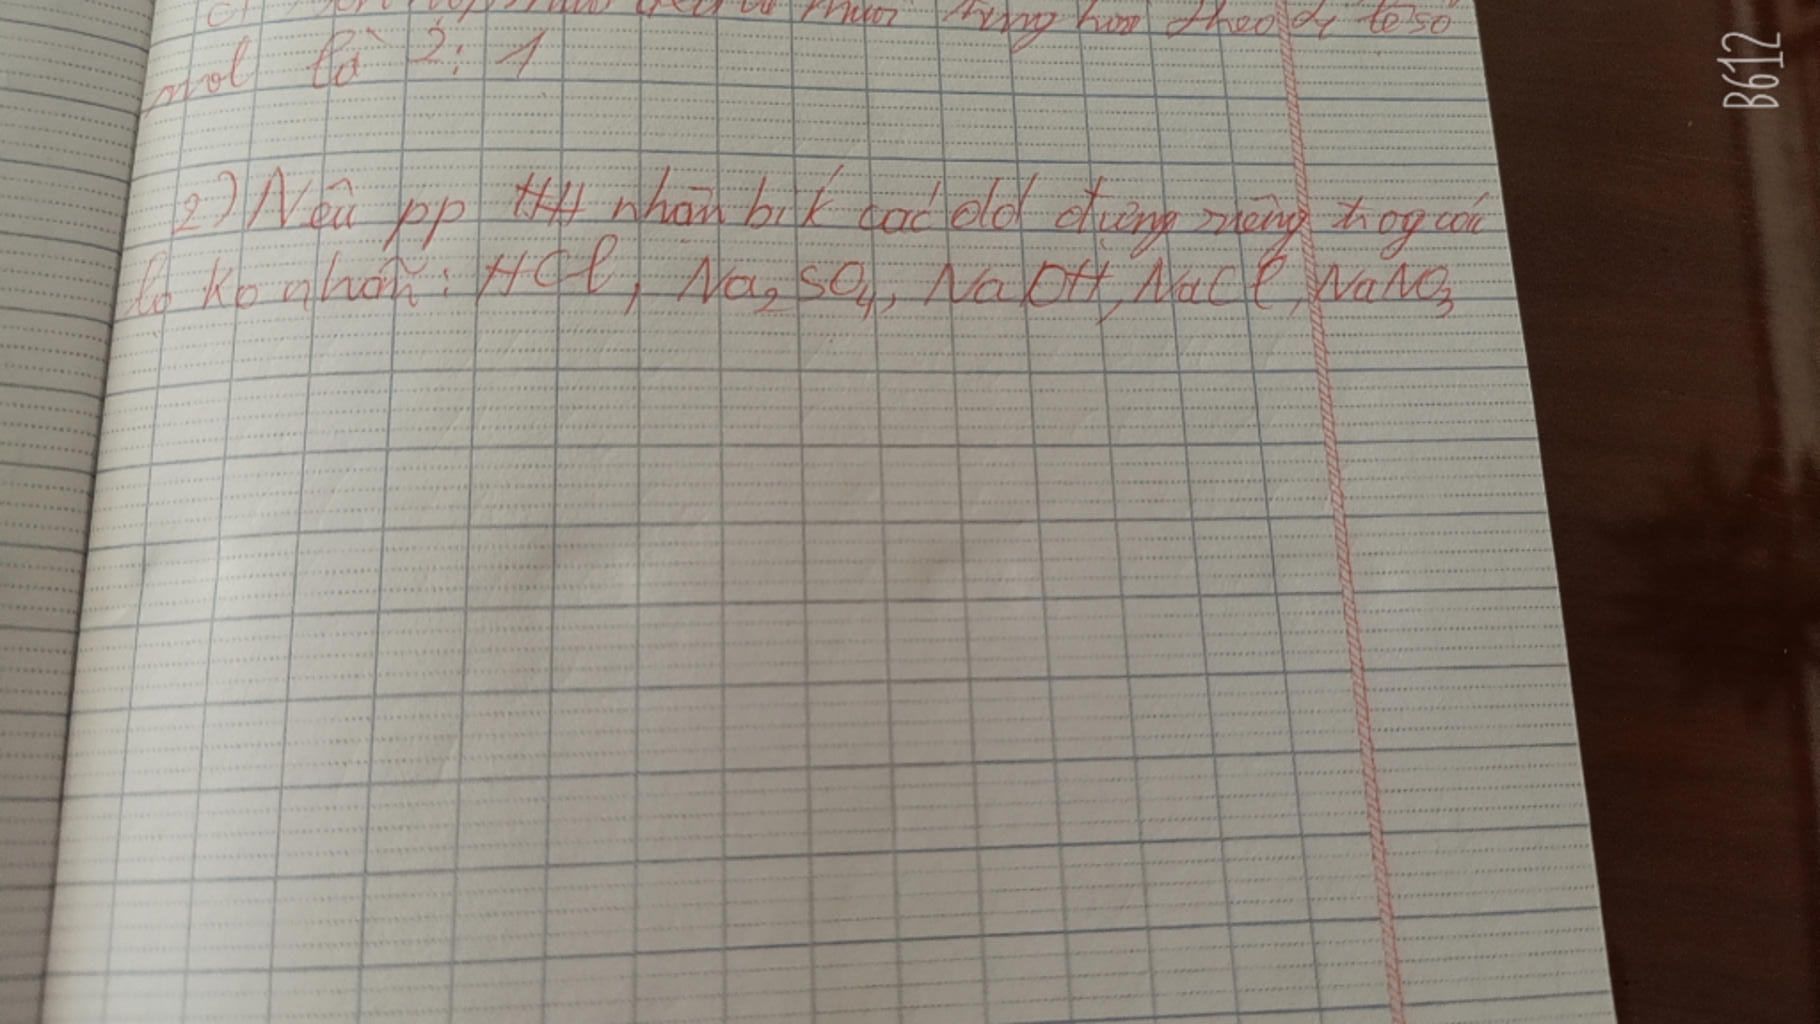 theo tỉ lệ số
mol là 2:1
2) Nêu pp HH nhận bik các dd đựng riêng trog các
lọ ko nhãn: HCl, Na2SO4, NaOH, NaCl, NaNO3
B612